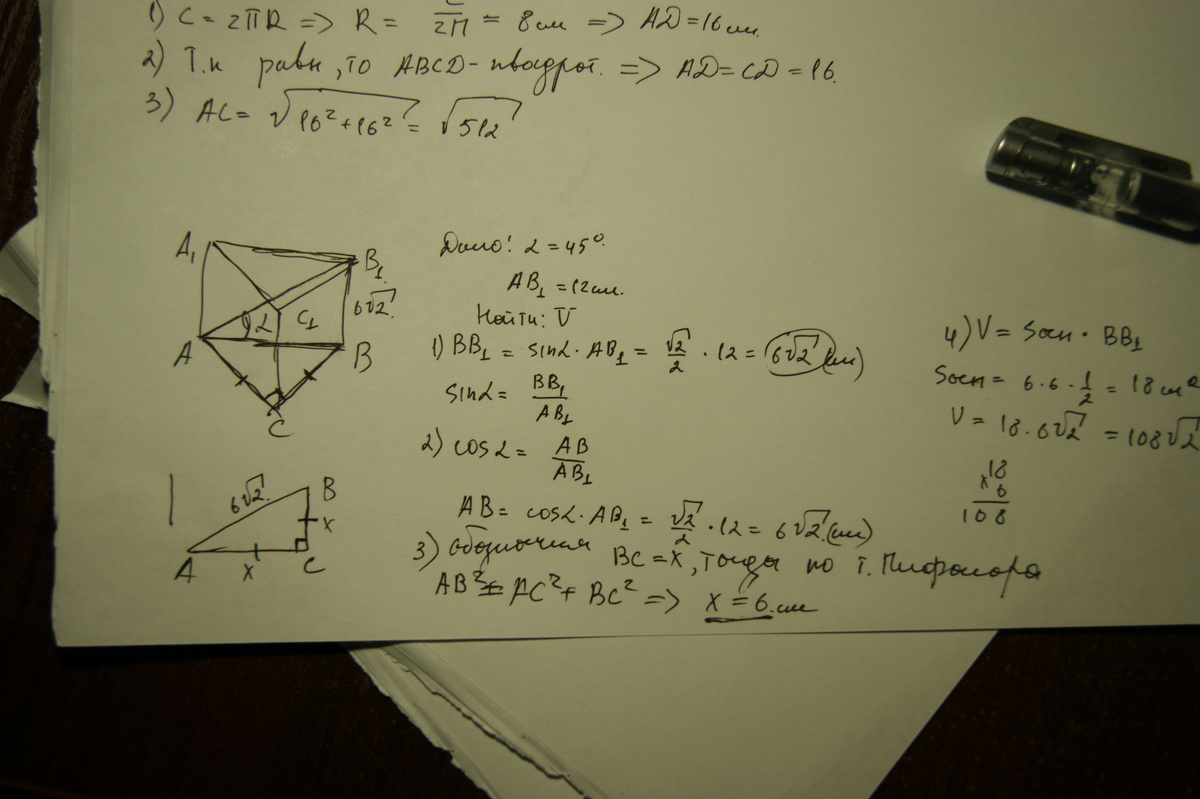 1) C = 2πR => R = C/2π = 8 см => AD = 16 см.
2) Т.к равн, то ABCD - квадрат. => AD = CD = 16.
3) AC = √16²+16² = √512
A₁
B₁
6√2
α
C₁
A
B
C
Дано: α = 45°.
AB₁ = 12 см.
Найти: V
1) BB₁ = sinα · AB₁ = √2/2 · 12 = 6√2 (см)
sinα = BB₁/AB₁
2) cosα = AB/AB₁
AB = cosα · AB₁ = √2/2 · 12 = 6√2 (см)
3) обозначим BC = x, тогда по т. Пифагора
AB² = AC² + BC² => x = 6 см
6√2
B
x
A
x
C
4) V = Sосн · BB₁
Sосн = 6·6·1/2 = 18 см²
V = 18·6√2 = 108√2
18
x 6
108